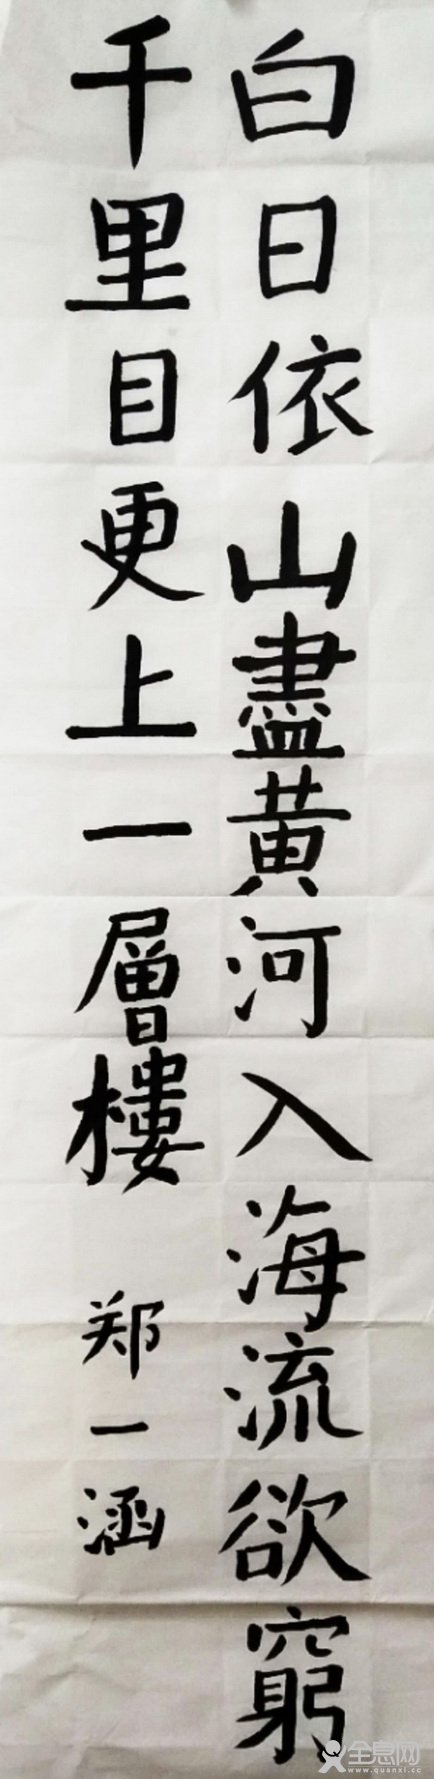 白日依山盡黄河入海流欲窮
千里目更上一層樓
郑一涵
全息网
www.quanxi.cc